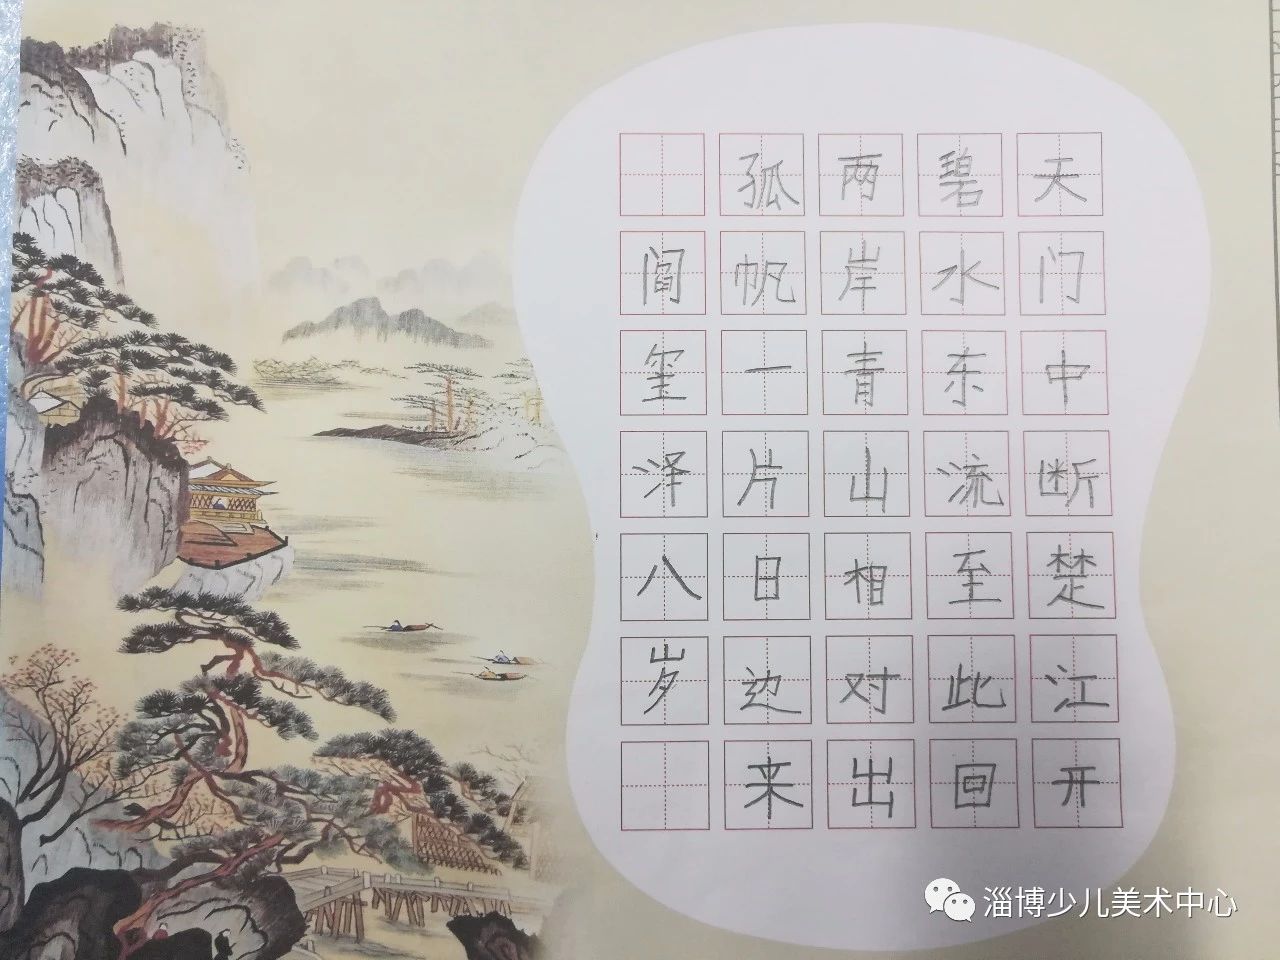 天门中断楚江开
碧水东流至此回
两岸青山相对出
孤帆一片日边来
阎玺泽八岁
淄博少儿美术中心